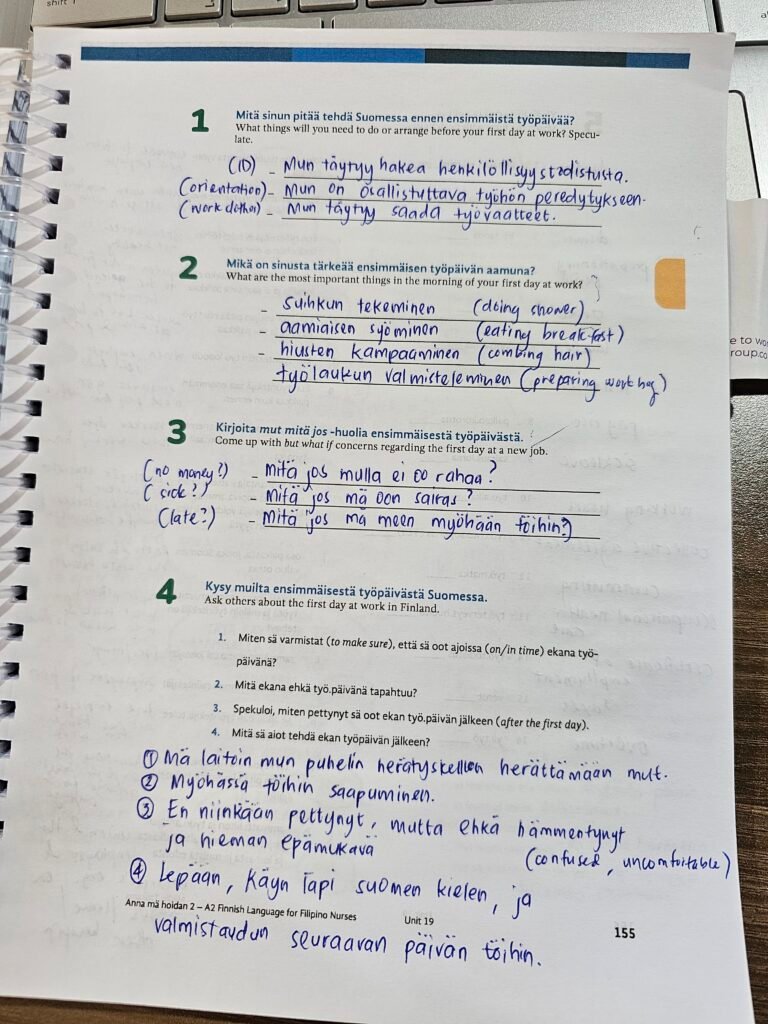 shift
1
Mitä sinun pitää tehdä Suomessa ennen ensimmäistä työpäivää?
What things will you need to do or arrange before your first day at work? Specu-
late.
(ID) - Mun täytyy hakea henkilöllisyystodistusta.
(orientation) - Mun on osallistuttava työhön peredytykseen.
(work clothes) - Mun täytyy saada työvaatteet.
2
Mikä on sinusta tärkeää ensimmäisen työpäivän aamuna?
What are the most important things in the morning of your first day at work?
- suihkun tekeminen (doing shower)
- aamiaisen syöminen (eating breakfast)
- hiusten kampaaminen (combing hair)
työlaukun valmisteleminen (preparing work bag)
3
Kirjoita mut mitä jos -huolia ensimmäisestä työpäivästä.
Come up with but what if concerns regarding the first day at a new job.
(no money?) - mitä jos mulla ei oo rahaa?
(sick?) - mitä jos mä oon sairas?
(late?) - mitä jos mä meen myöhään töihin?
4
Kysy muilta ensimmäisestä työpäivästä Suomessa.
Ask others about the first day at work in Finland.
1. Miten sä varmistat (to make sure), että sä oot ajoissa (on/in time) ekana työ-
päivänä?
2. Mitä ekana ehkä työ.päivänä tapahtuu?
3. Spekuloi, miten pettynyt sä oot ekan työ.päivän jälkeen (after the first day).
4. Mitä sä aiot tehdä ekan työpäivän jälkeen?
① Mä laitoin mun puhelin herätyskellon herättämään mut.
② Myöhässä töihin saapuminen.
③ En niinkään pettynyt, mutta ehkä hämmentynyt
ja hieman epämukavä (confused, uncomfortable)
④ Lepään, Käyn läpi suomen kielen, ja
Anna mä hoidan 2 – A2 Finnish Language for Filipino Nurses Unit 19 155
valmistaudun seuraavan päivän töihin.